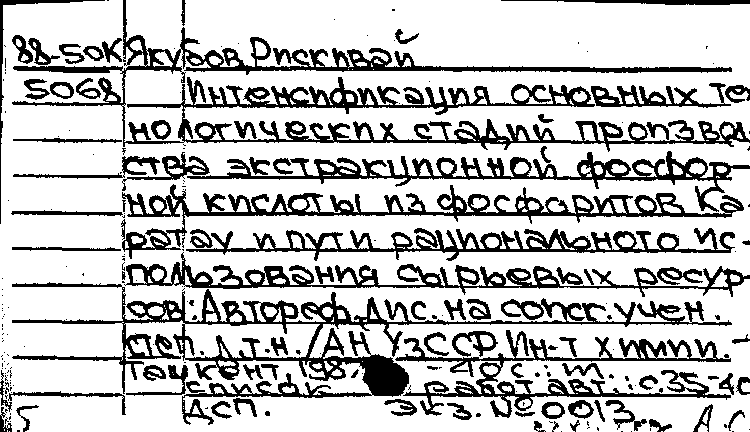 88-50К Якубов, Рискивай
5068 Интенсификация основных тех
нологических стадий производ
ства экстракционной фосфор-
ной кислоты из фосфоритов Ка-
ратау и пути рационального ис-
пользования сырьевых ресур-
сов: Автореф. дис. на соиск. учен.
степ. д.т.н. / АН УзССР, Ин-т химии. -
Ташкент, 1987 - 40 с.: т.
список работ авт.: с.35-40
ДСП. Экз. № 0013